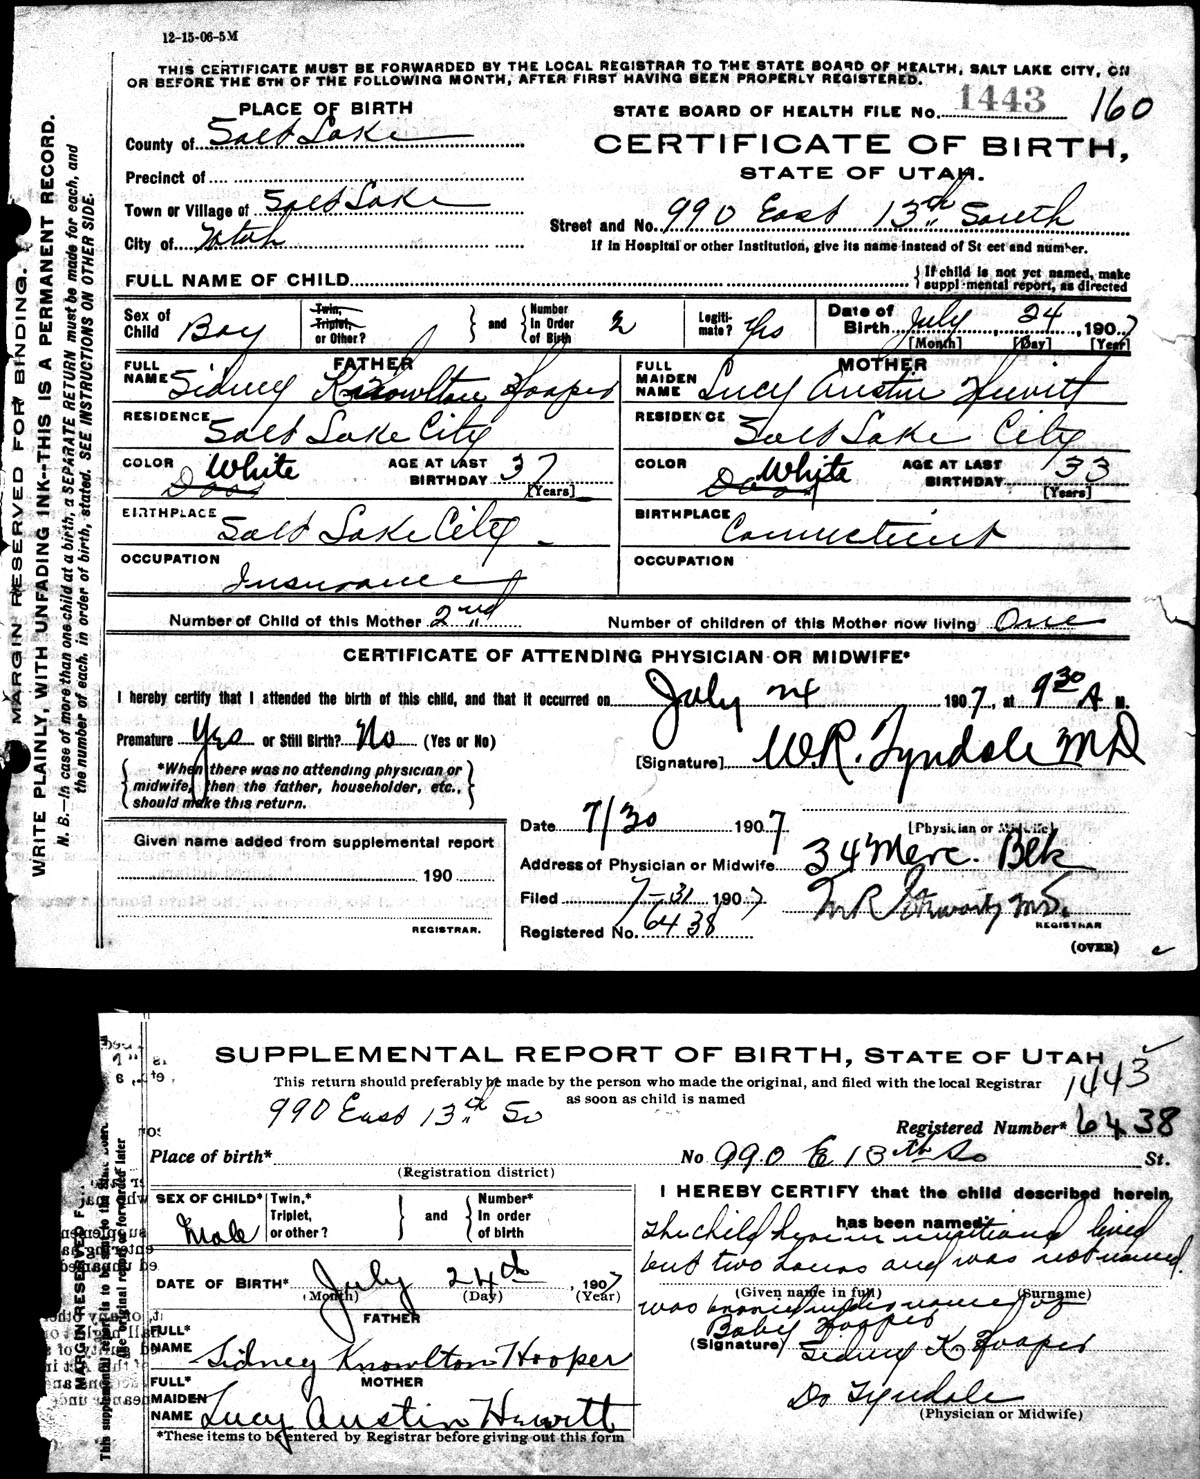 12-15-06-5M
THIS CERTIFICATE MUST BE FORWARDED BY THE LOCAL REGISTRAR TO THE STATE BOARD OF HEALTH, SALT LAKE CITY, ON
OR BEFORE THE 5TH OF THE FOLLOWING MONTH, AFTER FIRST HAVING BEEN PROPERLY REGISTERED.
MARGIN RESERVED FOR BINDING.
WRITE PLAINLY, WITH UNFADING INK--THIS IS A PERMANENT RECORD.
N. B.--In case of more than one child at a birth, a SEPARATE RETURN must be made for each, and
the number of each, in order of birth, stated. SEE INSTRUCTIONS ON OTHER SIDE.
PLACE OF BIRTH
County of Salt Lake
Precinct of
Town or Village of Salt Lake
City of Utah
STATE BOARD OF HEALTH FILE No. 1443 160
CERTIFICATE OF BIRTH,
STATE OF UTAH.
Street and No. 990 East 13th South
If in Hospital or other Institution, give its name instead of St eet and number.
FULL NAME OF CHILD
If child is not yet named, make
suppl mental report, as directed
Sex of Child Boy
Twin, Triplet, or Other?
and
Number In Order of Birth 2
Legiti-mate? Yes
Date of Birth July 24, 1907
[Month] [Day] [Year]
FATHER
FULL NAME Sidney Knowlton Hooper
MOTHER
FULL MAIDEN NAME Lucy Austin Hewitt
RESIDENCE Salt Lake City
RESIDENCE Salt Lake City
COLOR White
AGE AT LAST BIRTHDAY 37
[Years]
COLOR White
AGE AT LAST BIRTHDAY 33
[Years]
BIRTHPLACE Salt Lake City
BIRTHPLACE Connecticut
OCCUPATION Insurance
OCCUPATION
Number of Child of this Mother 2nd
Number of children of this Mother now living One
CERTIFICATE OF ATTENDING PHYSICIAN OR MIDWIFE*
I hereby certify that I attended the birth of this child, and that it occurred on July 24 1907, at 9 30 A M.
Premature Yes or Still Birth? No (Yes or No)
[Signature] W.R. Tyndale MD
*When there was no attending physician or
midwife, then the father, householder, etc.,
should make this return.
[Physician or Midwife]
Date 7/30 1907
Given name added from supplemental report
190
REGISTRAR.
Address of Physician or Midwife 34 Merc. Blk
Filed 7-31 1907
M.D.
REGISTRAR
Registered No. 6438
(OVER)
SUPPLEMENTAL REPORT OF BIRTH, STATE OF UTAH
1443
This return should preferably be made by the person who made the original, and filed with the local Registrar
as soon as child is named
990 East 13th So
Registered Number* 6438
Place of birth*
(Registration district)
No 990 E 13th So St.
SEX OF CHILD* Male
Twin,* Triplet, or other?
and
Number* In order of birth
DATE OF BIRTH* July 24th, 1907
(Month) (Day) (Year)
FATHER
FULL* NAME Sidney Knowlton Hooper
MOTHER
FULL* MAIDEN NAME Lucy Austin Hewitt
*These items to be entered by Registrar before giving out this form
I HEREBY CERTIFY that the child described herein
has been named:
The child herein mentioned lived
but two hours and was not named.
(Given name in full) (Surname)
was under name of
Baby Hooper
(Signature) Sidney K Hooper
Dr Tyndale
(Physician or Midwife)
MARGIN RESERVED